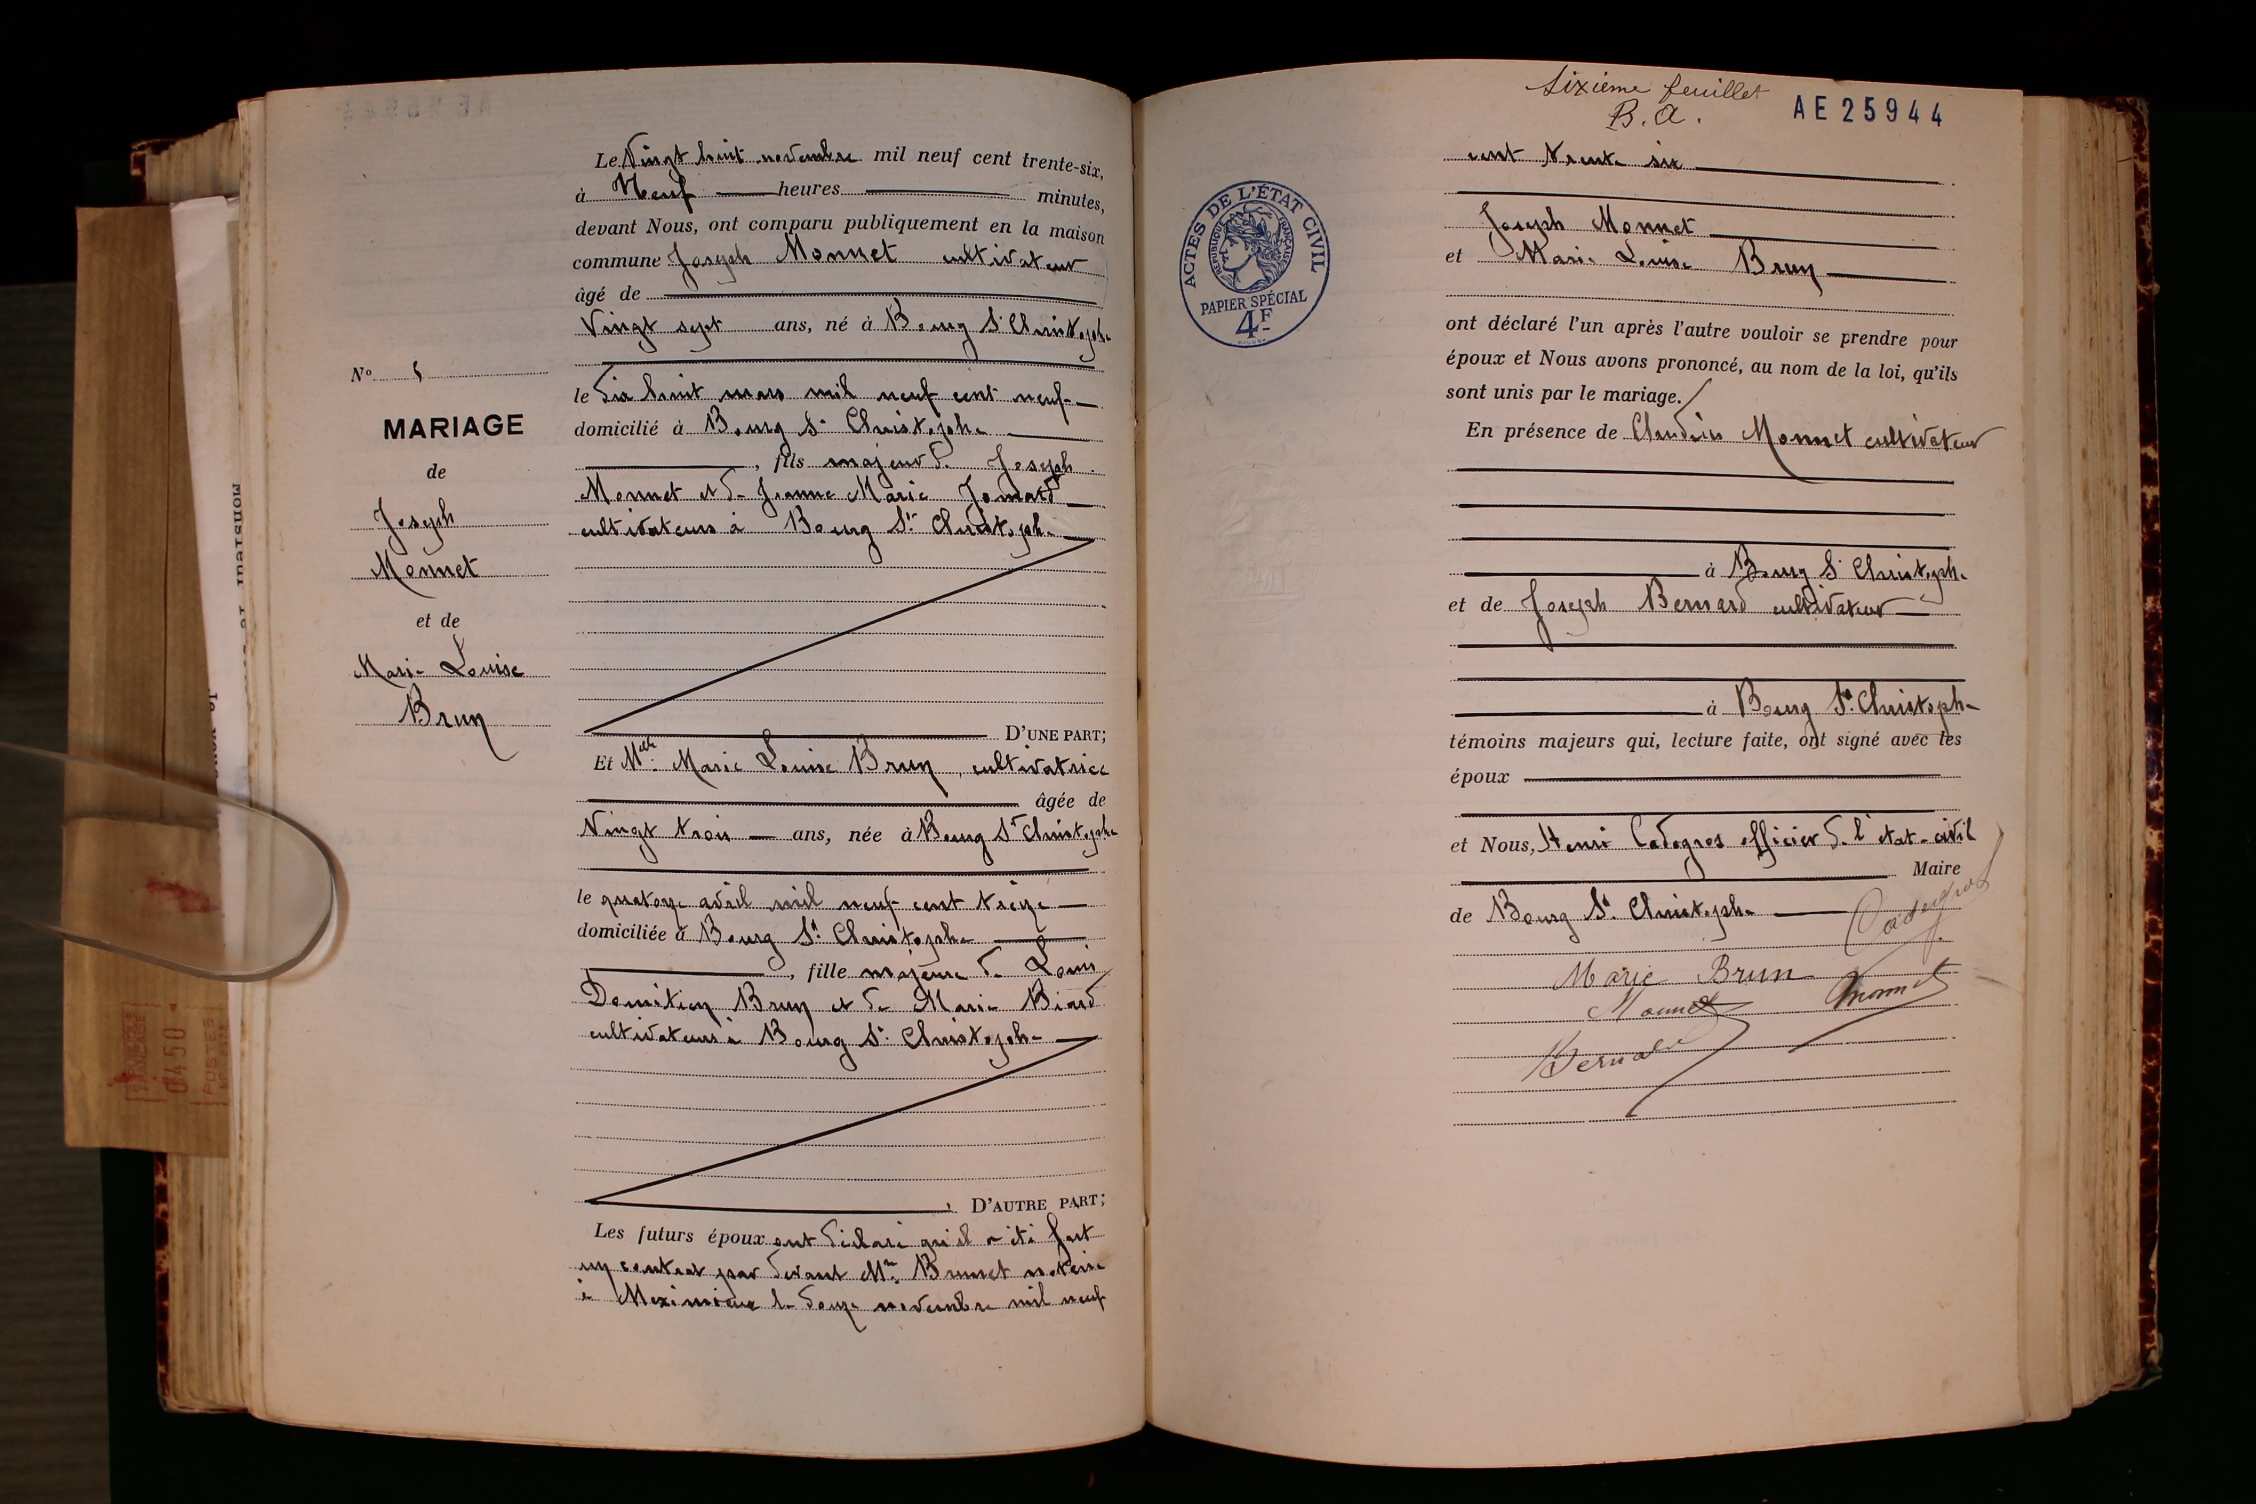 Le Vingt huit novembre mil neuf cent trente-six,
à Neuf heures minutes,
devant Nous, ont comparu publiquement en la maison
commune Joseph Monnet cultivateur
âgé de
Vingt sept ans, né à Bourg St Christophe
le dix huit mars mil neuf cent neuf
domicilié à Bourg St Christophe
, fils majeur de Joseph
Monnet et de Jeanne Marie Jomard
cultivateurs à Bourg St Christophe
D'UNE PART;
Et Melle Marie Louise Brun, cultivatrice
âgée de
Vingt trois ans, née à Bourg St Christophe
le quatorze avril mil neuf cent treize
domiciliée à Bourg St Christophe
, fille majeure de Louis
Domitien Brun et de Marie Biard
cultivateurs à Bourg St Christophe
, D'AUTRE PART;
Les futurs époux ont déclaré qu'il a été fait
un contrat par devant Me Brunet notaire
à Meximieux le douze novembre mil neuf
No
MARIAGE
de
Joseph
Monnet
et de
Marie Louise
Brun
0450
POSTES
Sixième feuillet
B. A.
AE25944
ACTES DE L'ÉTAT CIVIL
RÉPUBLIQUE FRANÇAISE
PAPIER SPÉCIAL
4F
cent trente six
Joseph Monnet
et Marie Louise Brun
ont déclaré l'un après l'autre vouloir se prendre pour
époux et Nous avons prononcé, au nom de la loi, qu'ils
sont unis par le mariage.
En présence de Claudius Monnet cultivateur
à Bourg St Christophe
et de Joseph Bernard cultivateur
à Bourg St Christophe
témoins majeurs qui, lecture faite, ont signé avec les
époux
et Nous, Henri Cadegros officier de l'état-civil
Maire
de Bourg St Christophe
Cadegros
Marie Brun
Monnet Monnet
Bernard